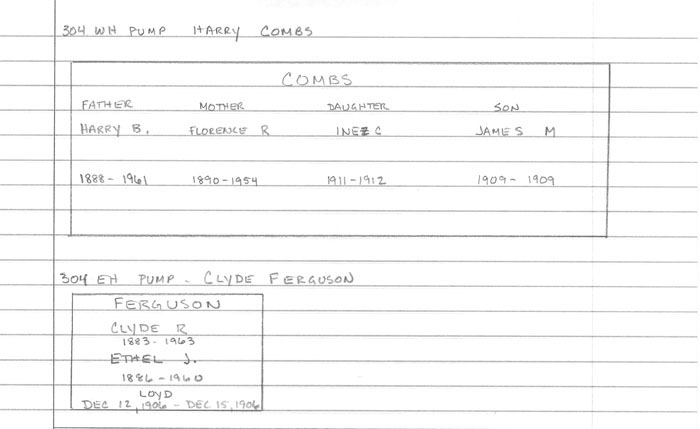 304 WH PUMP HARRY COMBS
COMBS
FATHER MOTHER DAUGHTER SON
HARRY B. FLORENCE R INEZ C JAMES M
1888 - 1961 1890 - 1954 1911 - 1912 1909 - 1909
304 EH PUMP - CLYDE FERGUSON
FERGUSON
CLYDE R
1883 - 1963
ETHEL J.
1886 - 1960
LOYD
DEC 12, 1906 - DEC 15, 1906